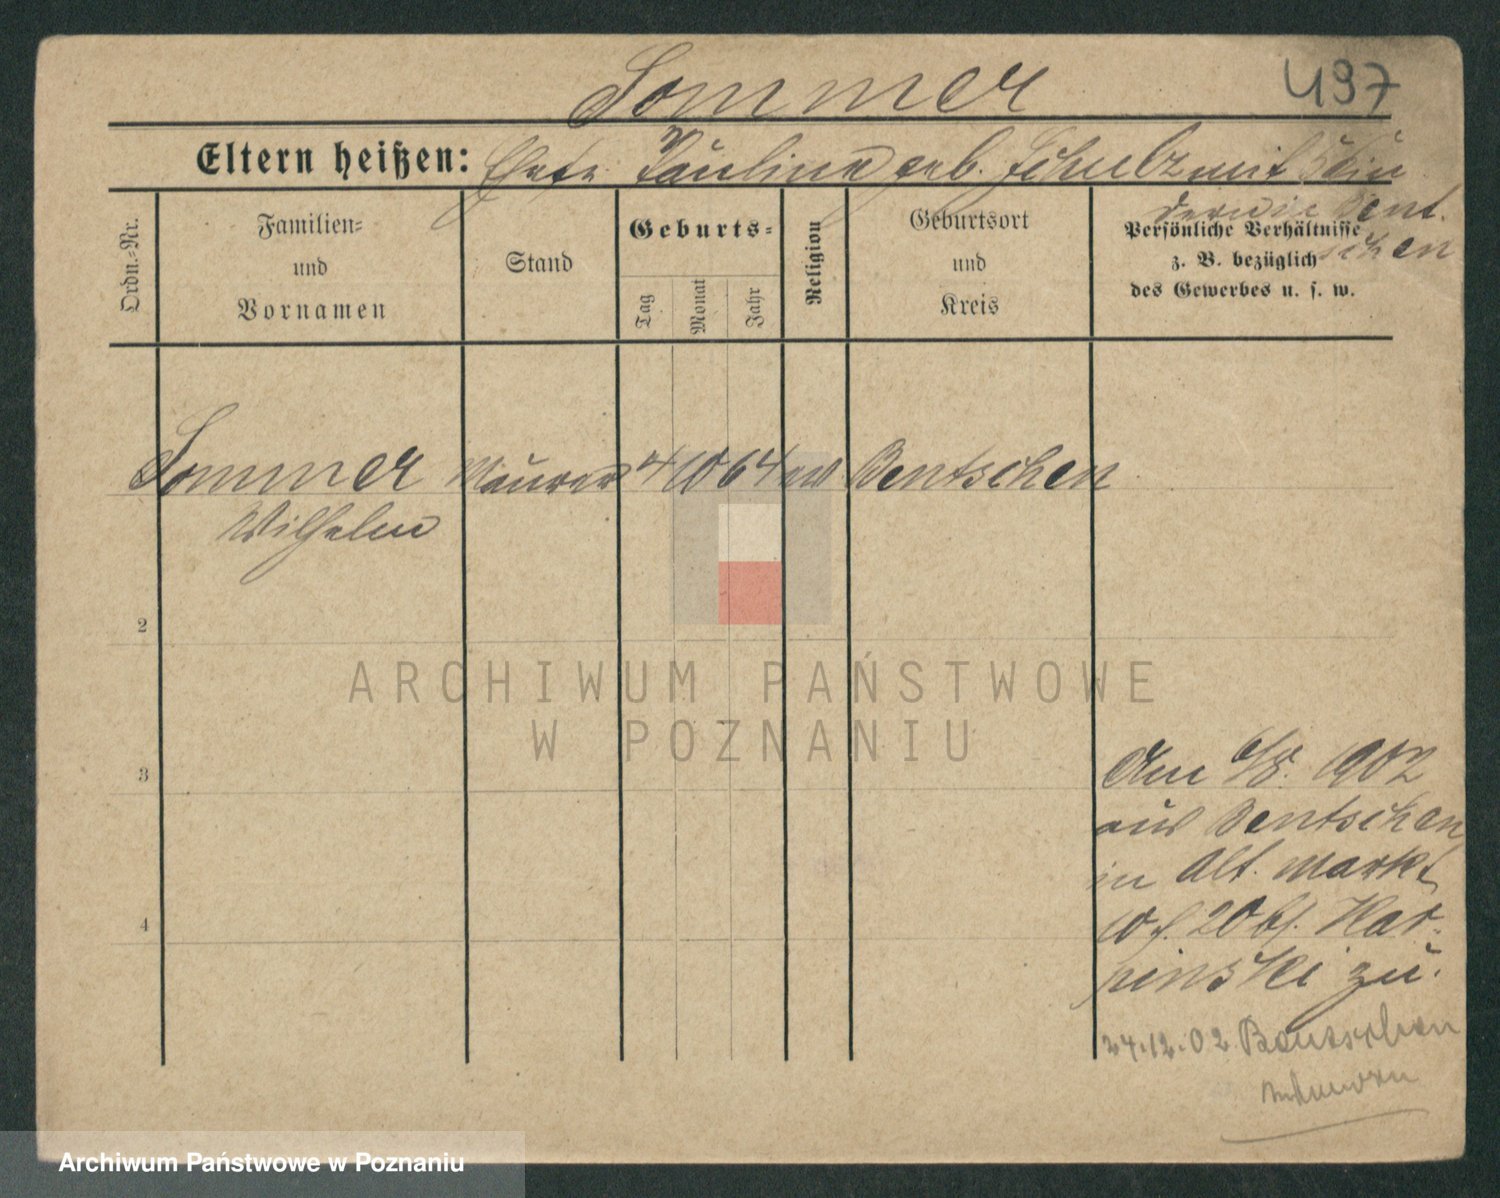 Sommer
497
Eltern heißen: Ehefr. Pauline geb. Schulz mit 5 Kin
dern in Bent.
schen
Ordn.-Nr.
Familien-
und
Vornamen
Stand
Geburts-
Tag
Monat
Jahr
Religion
Geburtsort
und
Kreis
Persönliche Verhältnisse
z. B. bezüglich
des Gewerbes u. s. w.
Sommer Maurer 4 10 64 ev Bentschen
Wilhelm
2
3
4
Am 6/8. 1902
aus Bentschen
in Alt. Markt
10 f. 20 bf. Kar-
pinski zu.
24.12.02 Bentschen
ARCHIWUM PAŃSTWOWE
W POZNANIU
Archiwum Państwowe w Poznaniu